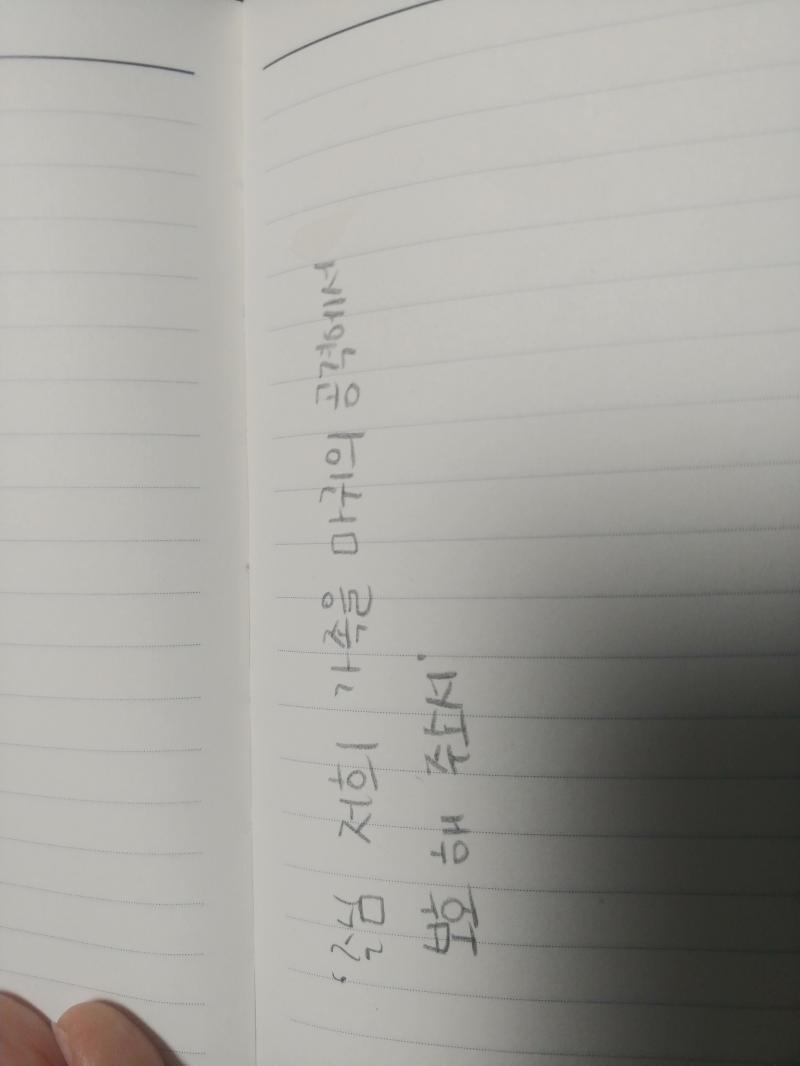 저희 가족을 마귀의 공격에서
보호 해 주소서.